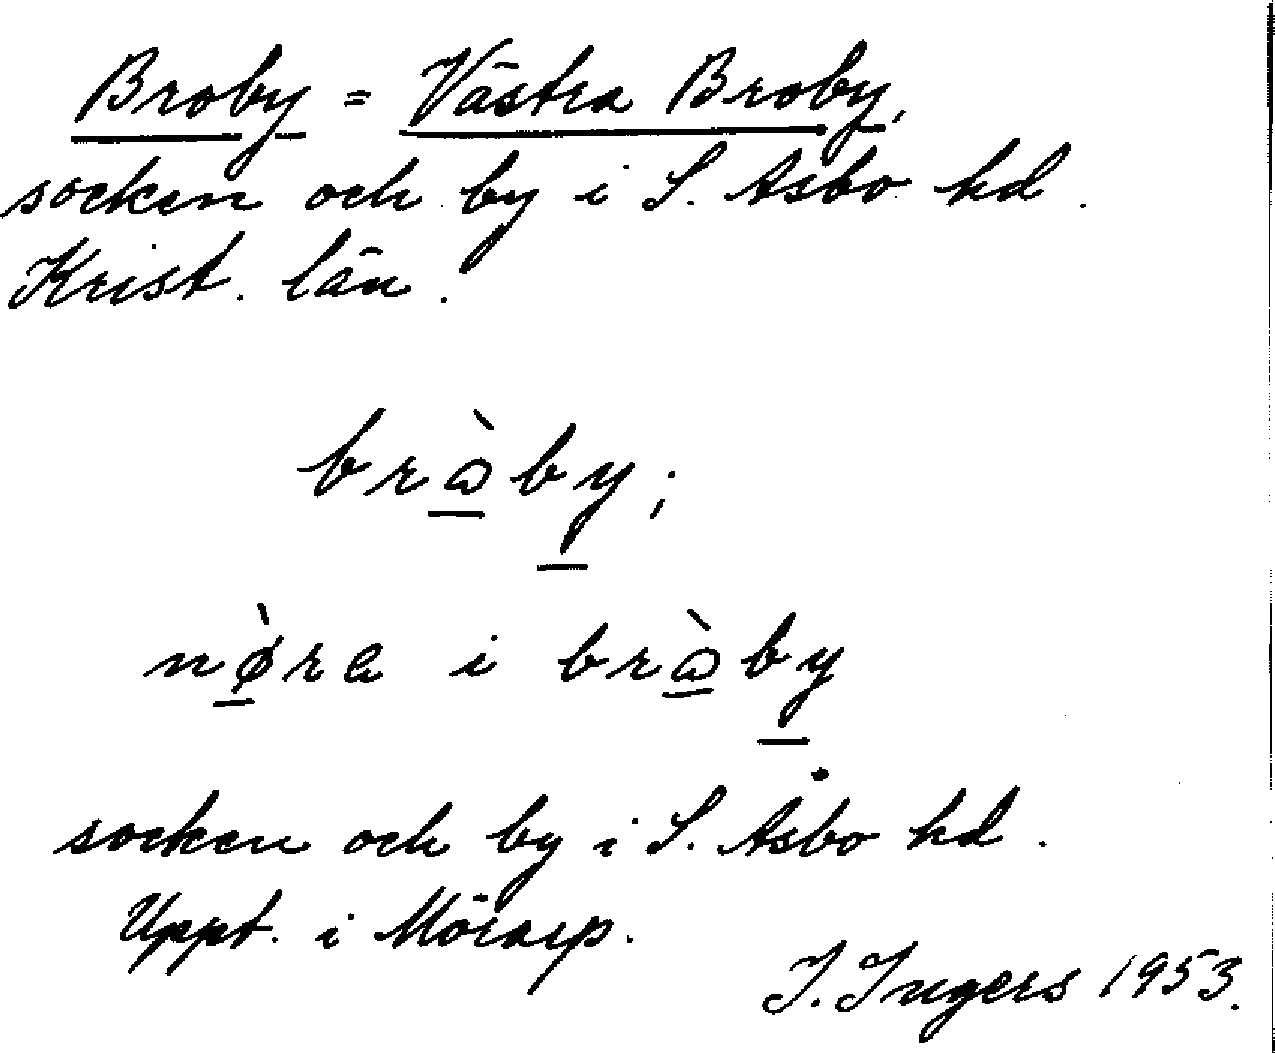 Broby = Västra Broby,
socken och by i S. Åsbo hd.
Krist. län.
brὼby;
nø̀ra i brὼby
socken och by i S. Åsbo hd.
Uppt. i Mörarp.
I. Ingers 1953.